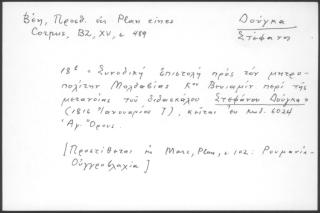 Βέη, Προσθ. εἰς Plan eines
Corpus, BZ, XV, σ 489
Δούγκα
Στέφανος
18ε « Συνοδικὴ ἐπιστολὴ πρὸς τὸν μητρο-
πολίτην Μολδαβίας Κον Βενιαμὶν περὶ τῆς
μετανοίας τοῦ διδασκάλου Στεφάνου Δούγκα»
(1816 Ἰανουαρίου Γ), κεῖται ἐν κωδ. 6024
Ἁγ. Ὄρους.
[Προστίθεται εἰς Marc, Plan, σ 102: Ρουμανία-
Οὐγγροβλαχία]